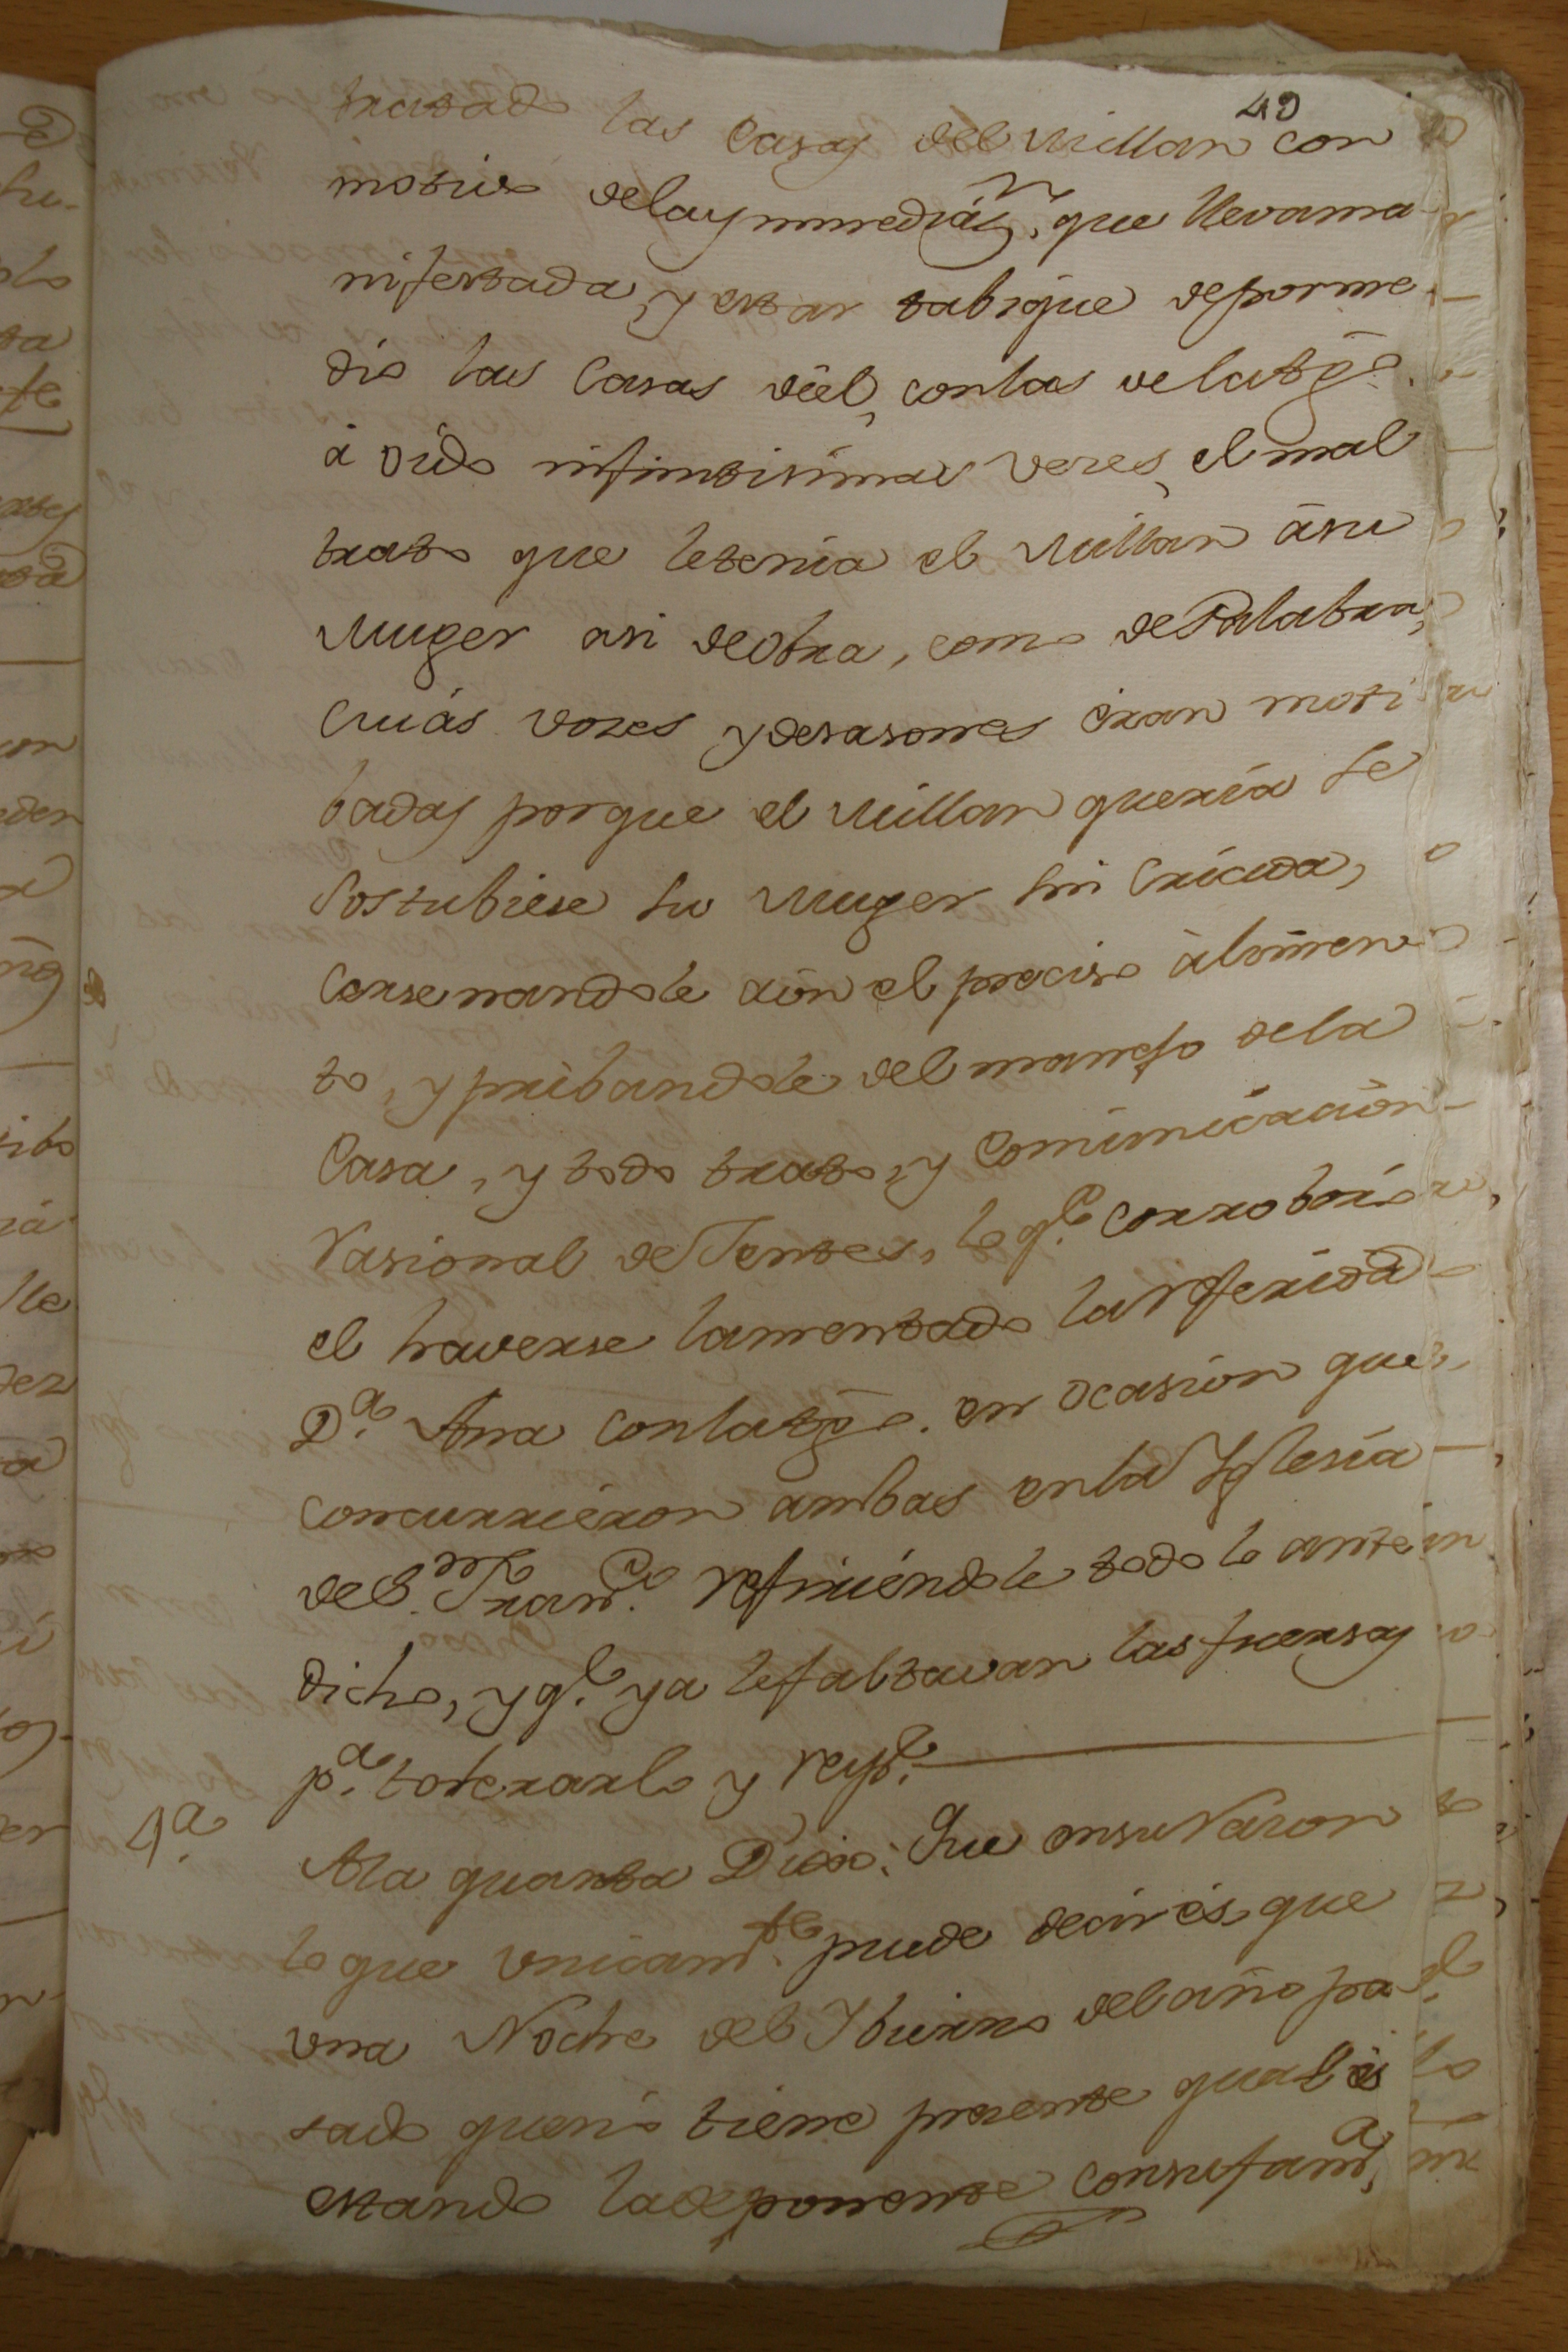 49
tratado las Casas del Millan con
motivo delaynmediaz.n que lleva ma
nifestada, y estar tabique depor me
dio las Casas de el, con las de la tgo.
à oido infinitisimas vezes, el mal
trato que le tenia el Millan àsu
Muger asi de obra, como de Palabra,
Cuiàs vozes y desasones èran moti
badas porque el Millan queria se
sostubiese su Muger sin Criada,
Cersenandole aùn el preciso àlimen
to, y pribandole del manejo dela
Casa, y todo trato, y Comunicaciòn
Rasional de Jentes, lo q.e corroborò
el haverse lamentado la referida
D.a Ana con la tgo. en ocasion que
concurrieron ambas en la Yglesia
de S.n Fran.co refiriéndole todo lo ante
dicho, y q.e ya le faltavan las fuersas
p.a tolerarlo y resp.de
4.a
Ala quarta Dixo: Que en su Razon
lo que Vnicam.te puede decir ès, que
vna Noche del Ybierno del año pa
sado que nò tiene presente qual ès
estando la deponente con su fam.a,